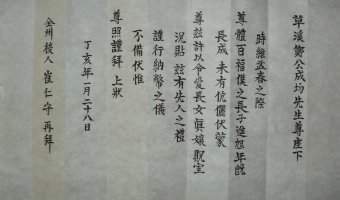 草溪鄭公成均先生尊座下
時維孟春之際
尊體百福僕之長子進旭年旣
長成未有伉儷伏蒙
尊玆許以令愛長女眞孃貺室
況貼玆有先人之禮
謹行納幣之儀
不備伏惟
尊照謹拜上狀
丁亥年一月二十八日
全州後人崔仁守再拜